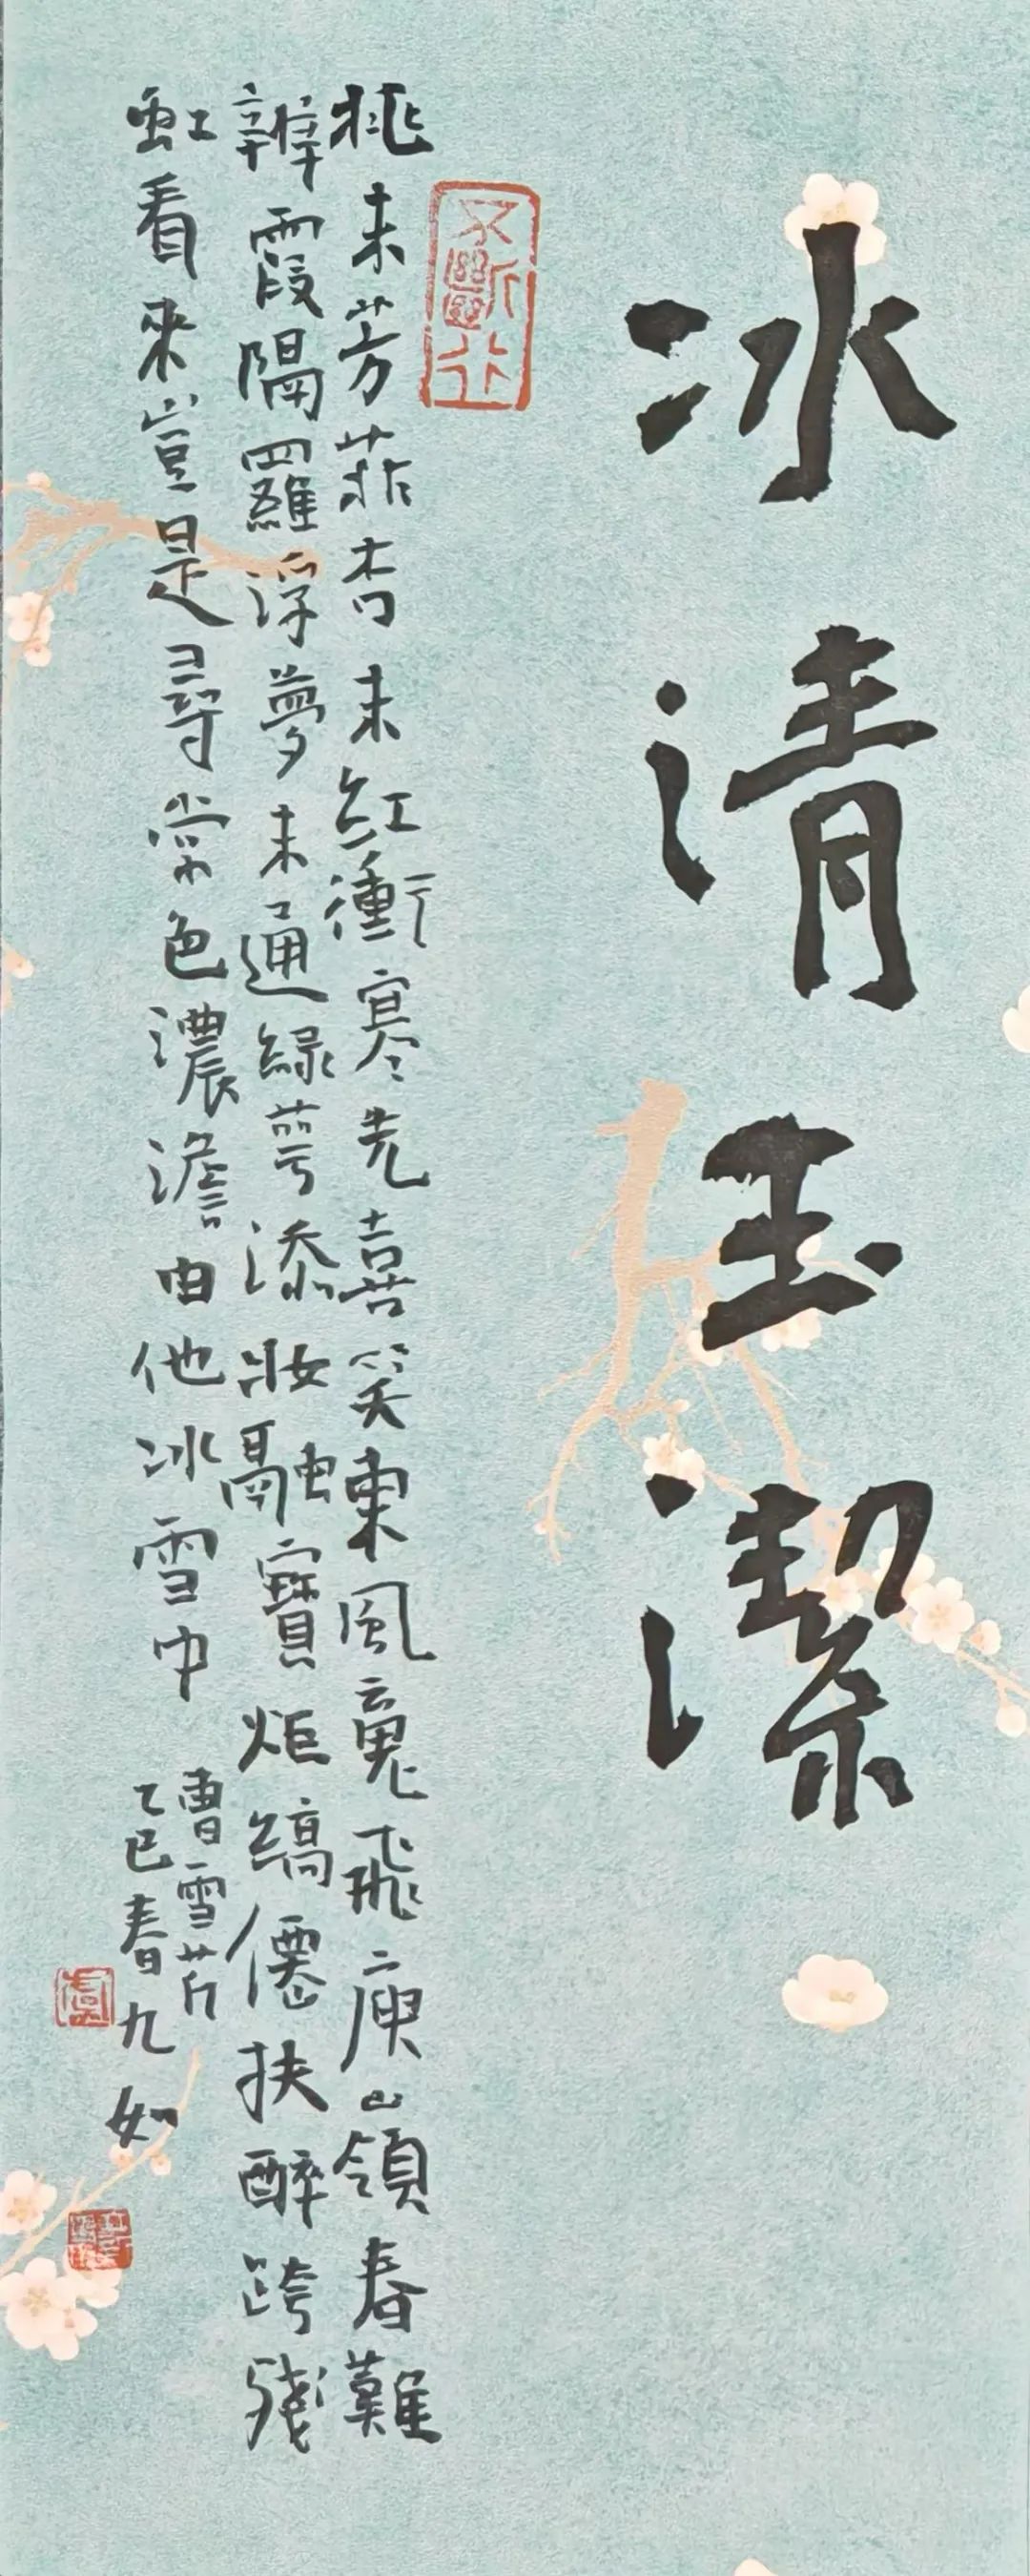 冰清玉潔
不斷
桃未芳菲杏未紅衝寒先喜笑東風魂飛庾嶺春難
辨霞隔羅浮夢未通綠萼添妝融寶炬縞僊扶醉跨殘
虹看來豈是尋常色濃澹由他冰雪中
曹雪芹
乙巳春九如